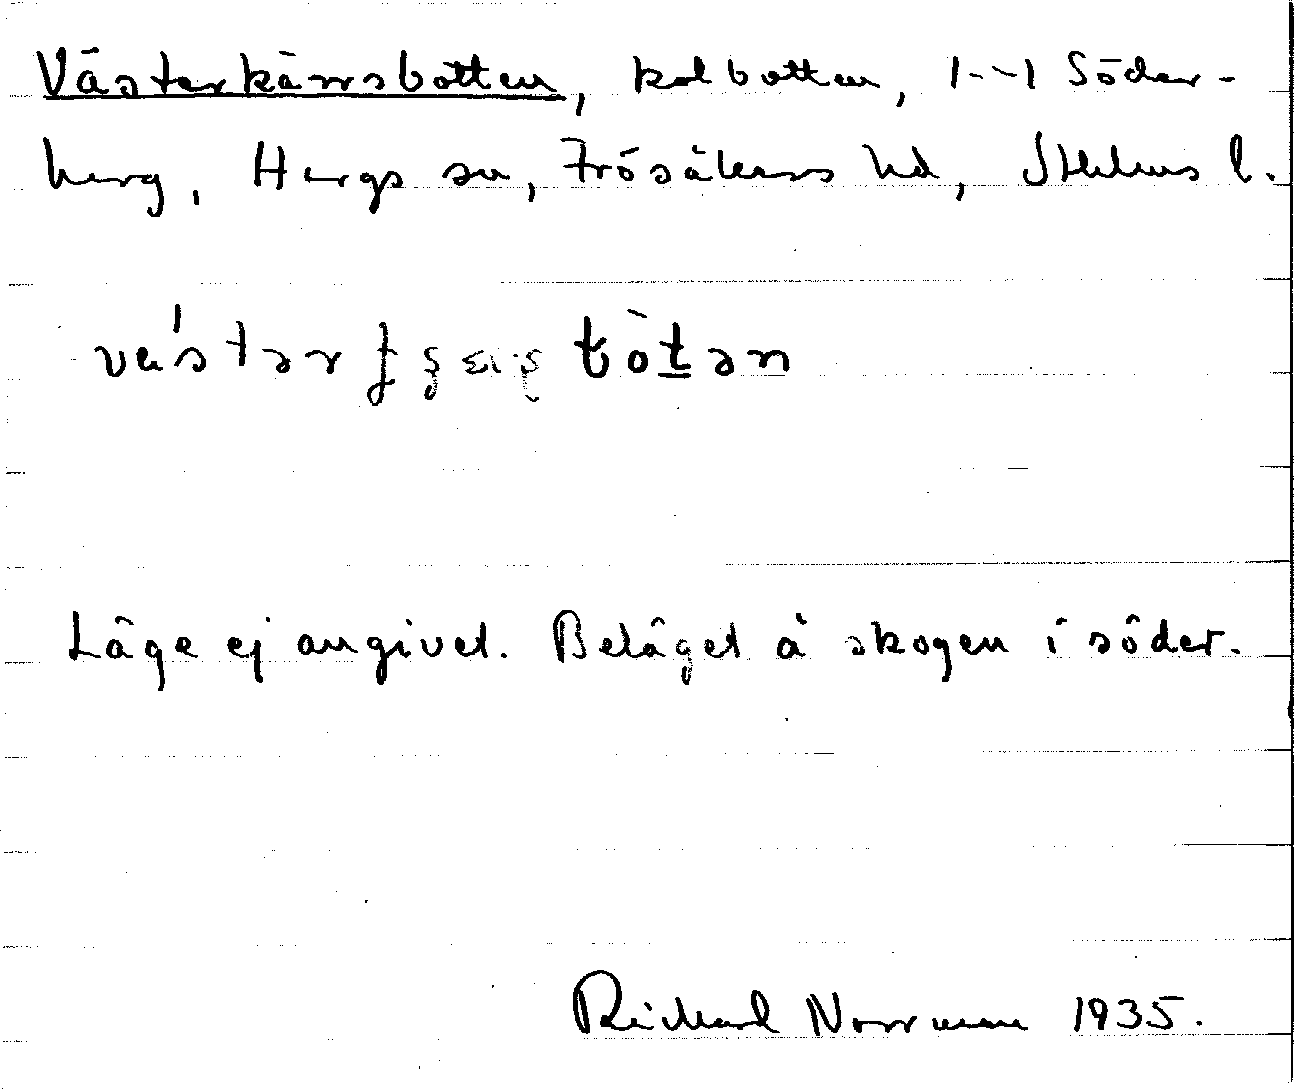 Västerkärrsbotten, kolbotten, 1-~1 Söder-
berg, Hargs sn, Frösåkers hd, Sthlms l.
Läge ej angivet. Beläget å skogen i söder.
Richard Norrman 1935.